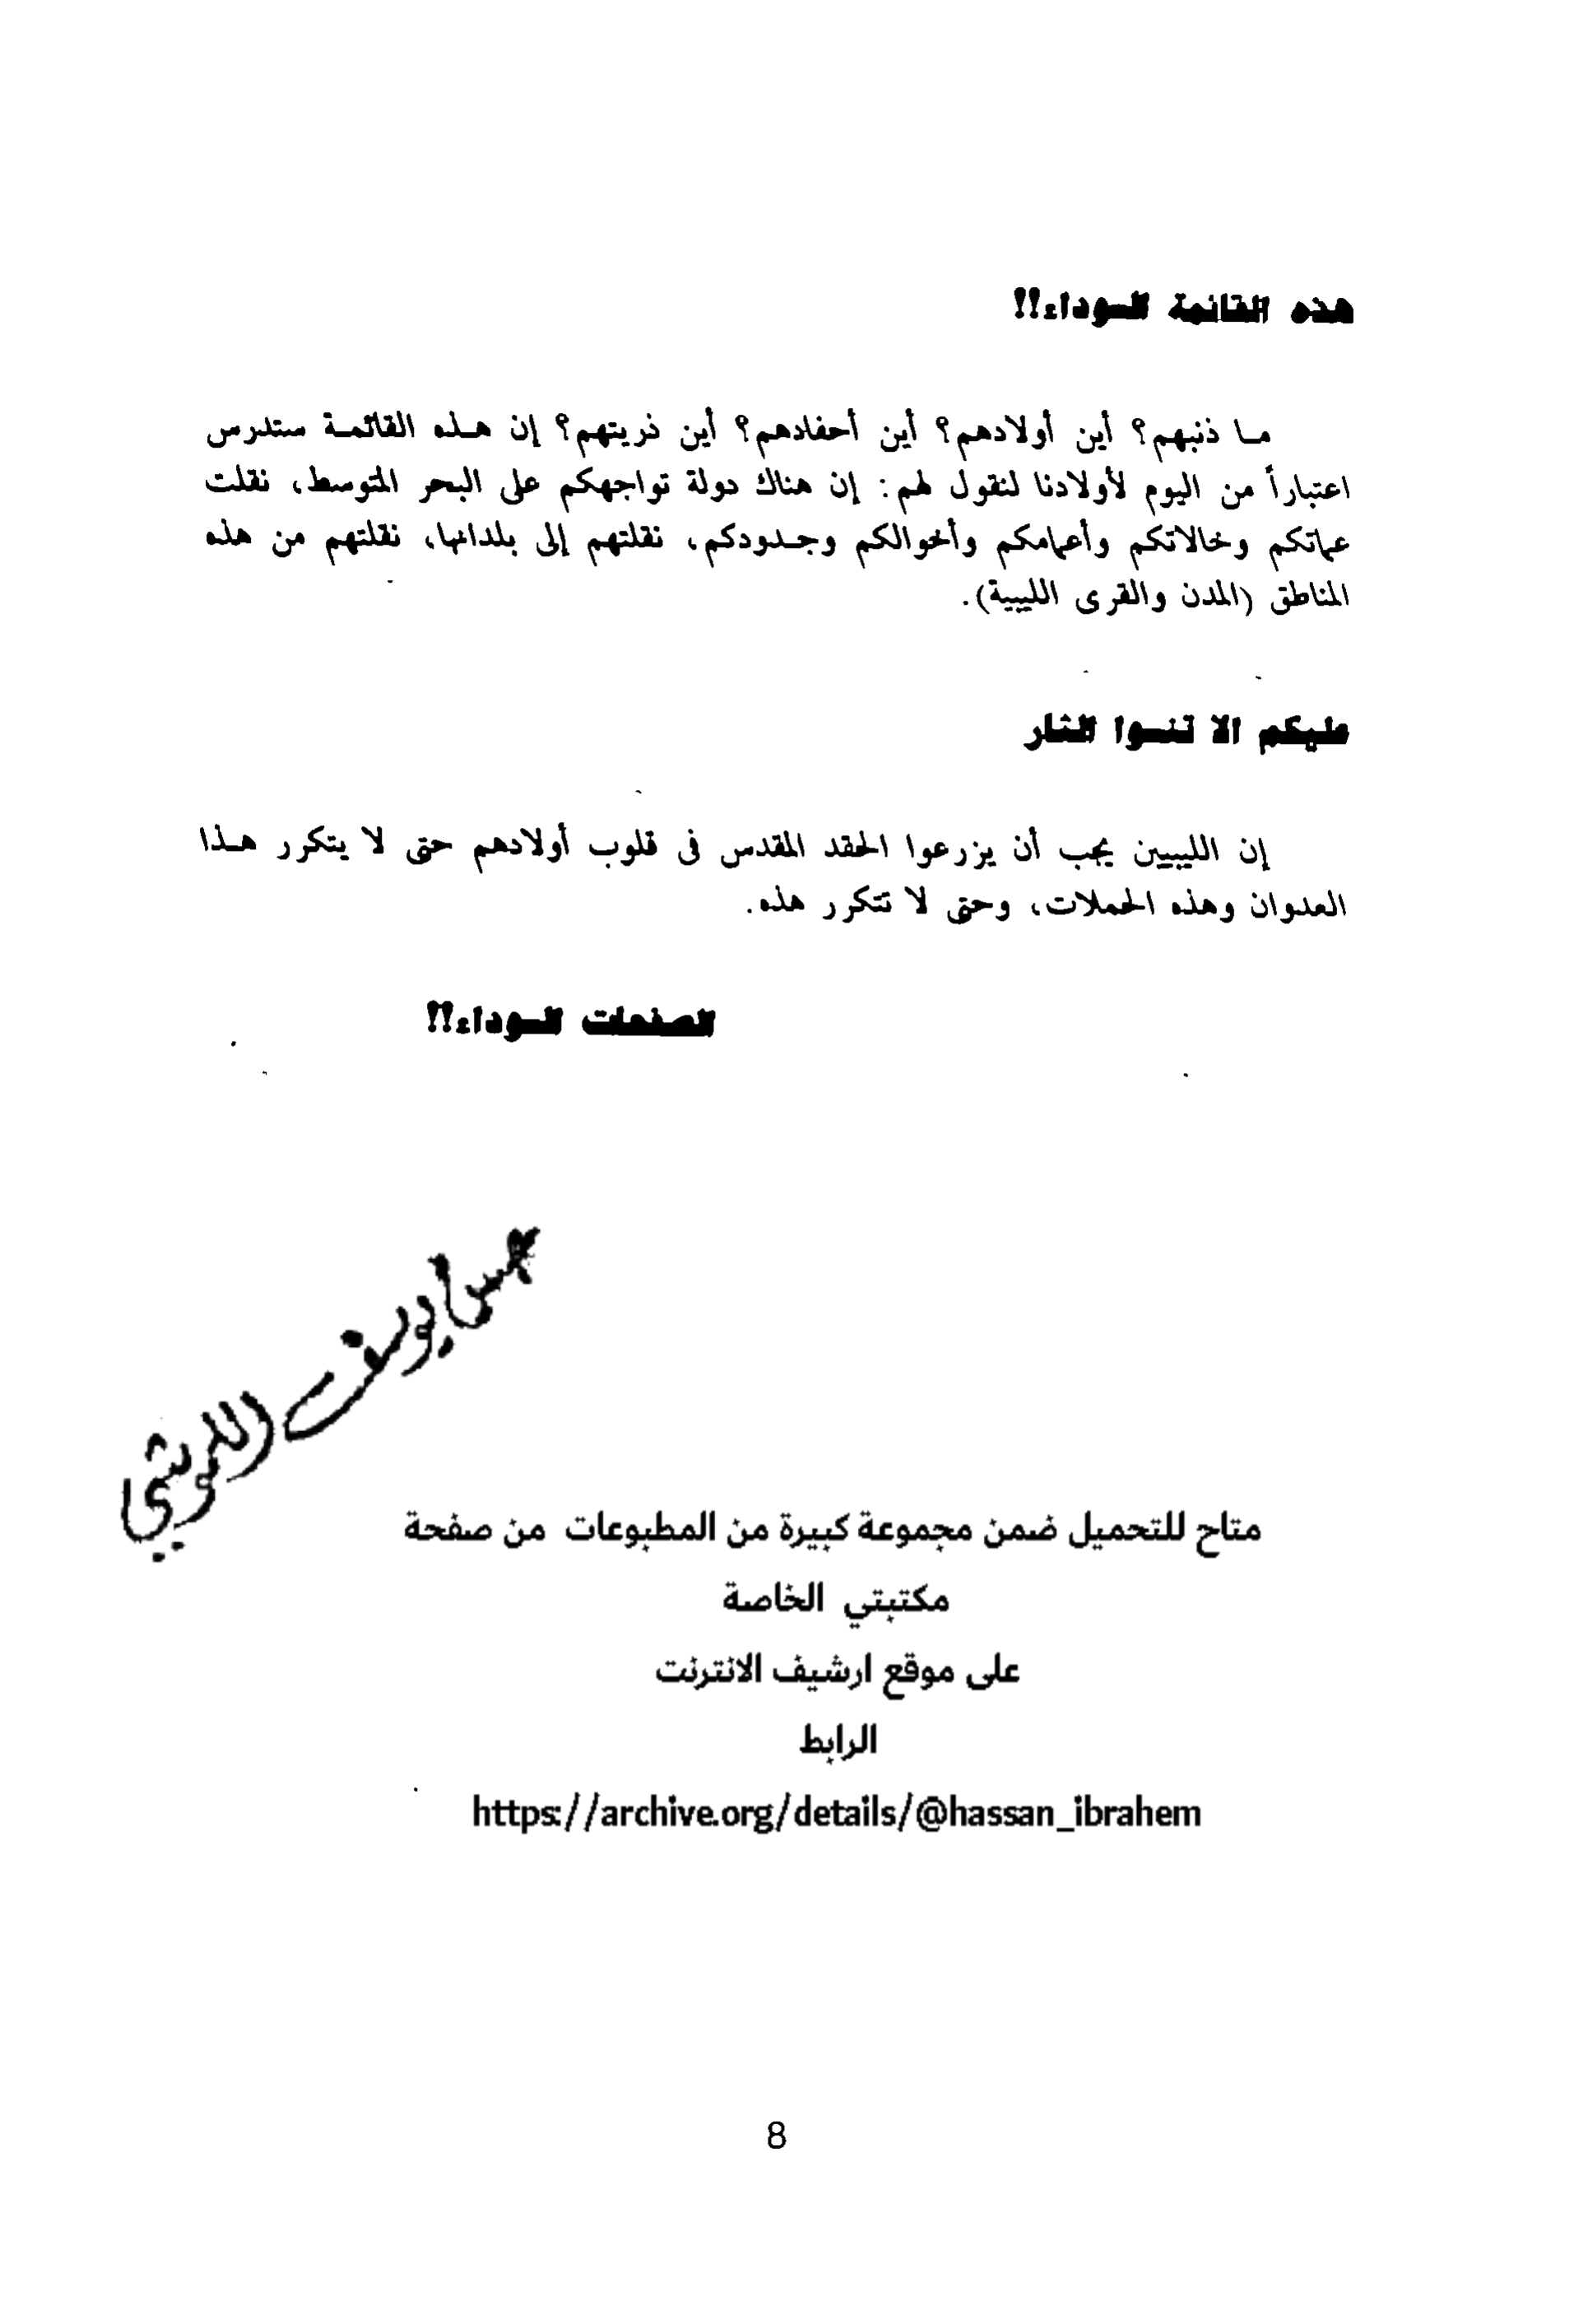 هذه القائمة السوداء!!
ما ذنبهم؟ أين أولادهم؟ أين أحفادهم؟ أين ذريتهم؟ إن هذه القائمة ستدرس
اعتباراً من اليوم لأولادنا لنقول لهم : إن هناك دولة تواجهكم على البحر المتوسط، نقلت
عماتكم وخالاتكم وأعمامكم وأخوالكم وجدودكم، نقلتهم إلى بلدانها، نقلتهم من هذه
المناطق (المدن والقرى الليبية).
عليكم الا تنسوا الثار
إن الليبيين يجب أن يزرعوا الحقد المقدس فى قلوب أولادهم حتى لا يتكرر هذا
العدوان وهذه الحملات، وحتى لا تتكرر هذه.
الصفحات السوداء!!
يوسف
متاح للتحميل ضمن مجموعة كبيرة من المطبوعات من صفحة
مكتبتي الخاصة
على موقع ارشيف الانترنت
الرابط
https://archive.org/details/@hassan_ibrahem
8